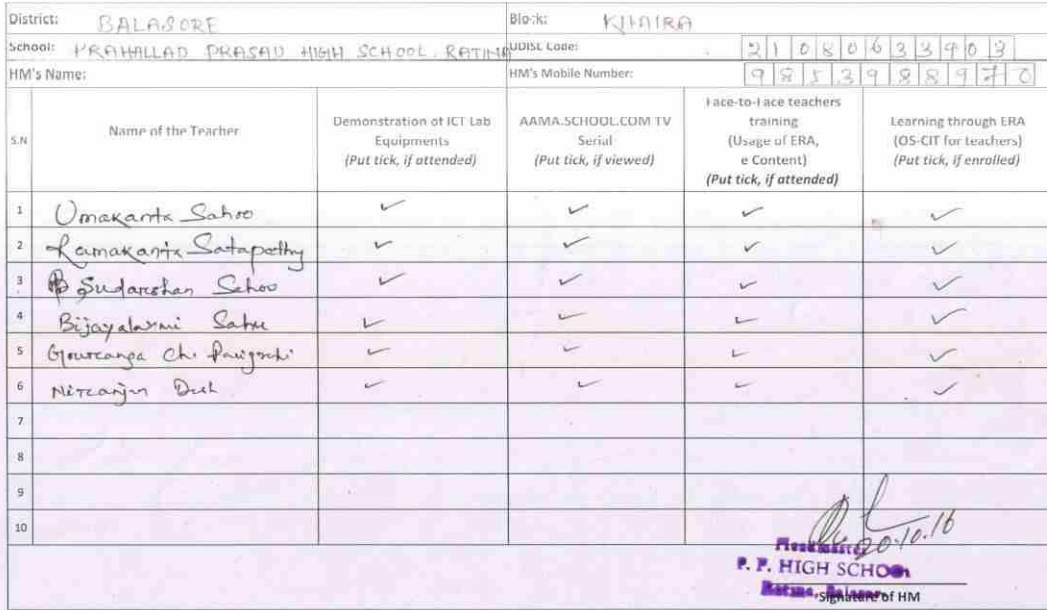 District: BALASORE Block: KHAIRA
School: PRAHALLAD PRASAD HIGH SCHOOL, RATINA UDISE Code: 21080633403
HM's Name: HM's Mobile Number: 9853988970
S.N Name of the Teacher Demonstration of ICT Lab Equipments (Put tick, if attended) AAMA.SCHOOL.COM TV Serial (Put tick, if viewed) Face-to-Face teachers training (Usage of ERA, e Content) (Put tick, if attended) Learning through ERA (OS-CIT for teachers) (Put tick, if enrolled)
1 Umakanta Sahoo ✓ ✓ ✓ ✓
2 Ramakanta Satapathy ✓ ✓ ✓ ✓
3 Sudarshan Sahoo ✓ ✓ ✓ ✓
4 Bijayalaxmi Sahu ✓ ✓ ✓ ✓
5 Gouranga Ch. ✓ ✓ ✓ ✓
6 Niranjan Dash ✓ ✓ ✓ ✓
7
8
9
10
20.10.16
Headmaster
P. P. HIGH SCHOOL
Ratina, Balasore
Signature of HM